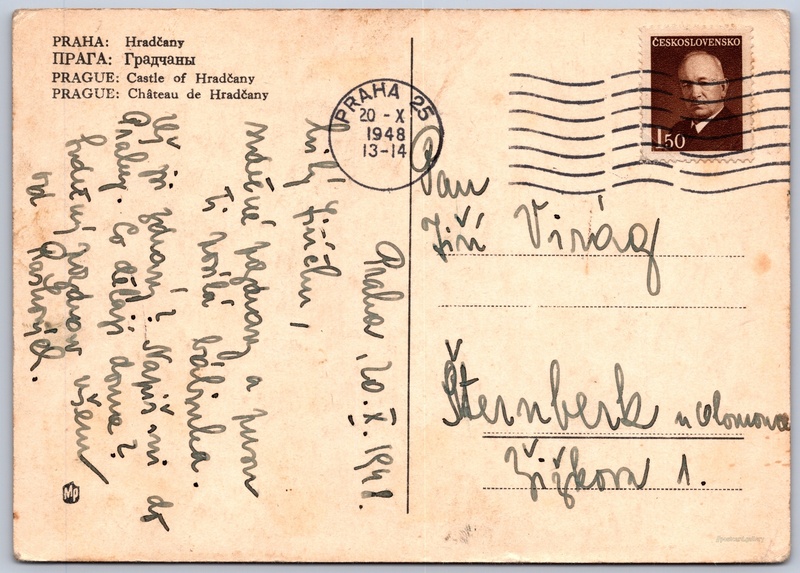 PRAHA: Hradčany
ПРАГА: Градчаны
PRAGUE: Castle of Hradčany
PRAGUE: Château de Hradčany
PRAHA 25
20 - X
1948
13-14
ČESKOSLOVENSKO
1.50
Pan
Jiří Virág
Šternberk u Olomouce
Žižkova 1.
Praha, 20.X.1948.
Milý Jiříčku,
srdečné pozdravy a pusu
Ti posílá babinka.
Už jsi zdravý? Napiš mi do
Prahy. Co dělají doma?
Srdečný pozdrav všem
od
Mp